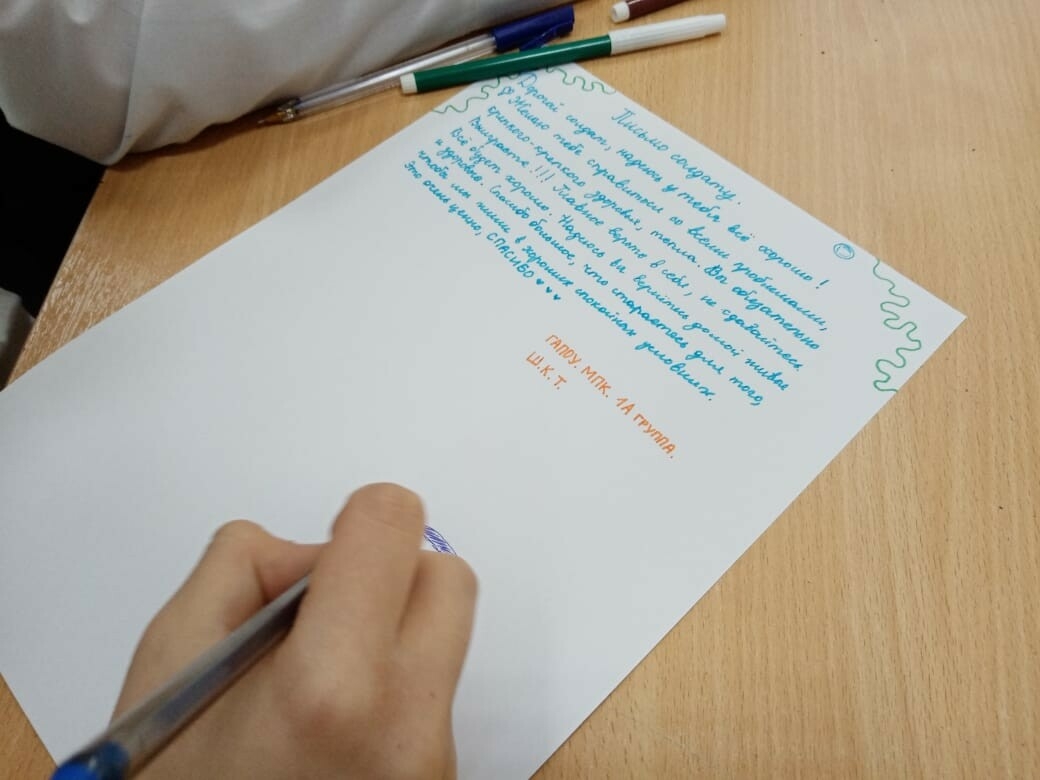 Письмо солдату.
Дорогой солдат, надеюсь у тебя всё хорошо!
Желаю тебе справиться со всеми проблемами,
крепкого-крепкого здоровья, тепла. Вы обязательно
Выиграете!!! Главное верьте в себя, не сдавайтесь
Всё будет хорошо. Надеюсь вы вернётесь домой живые
и здоровые. Спасибо большое, что стараетесь для того,
чтобы мы жили в хороших спокойных условиях.
Это очень ценно, СПАСИБО ♥♥♥
ГАПОУ. МПК. 1А ГРУППА.
Ш.К.Т.